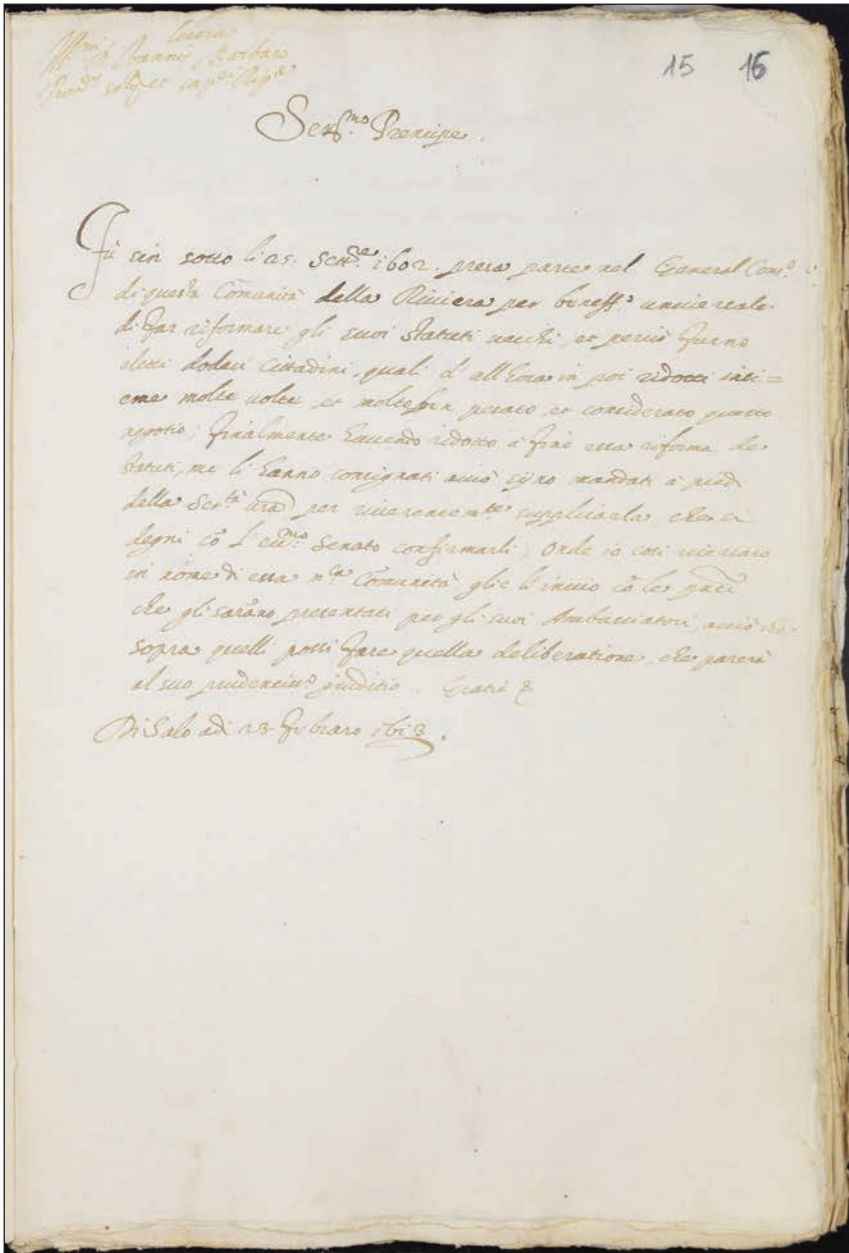 Lettera
Ill.mi S. Zuanne Barbaro
15 16
Ser.mo Prencipe.
Fù sin sotto li 25. Sett.re 1602. presa parte nel General Cons.o
di questa Comunità della Riviera per beneff.o universale
di far riformare gli suoi statuti vecchi, et perciò furno
eletti dodeci Cittadini, quali d'all'hora in poi ridotti insi=
eme molte volte et molto ben pesato, et considerato questo
negotio; finalmente havendo ridotto à fine essa riforma de
statuti, me li hanno consignati acciò sijno mandati à piedi
della Ser.tà v̅r̅a̅ per riverentem.te supplicarla che si
degni cō l'ecc.mo Senato confirmarli; Onde io così ricercato
in nome di essa m.ca Comunità glie li invio cō le p̅n̅t̅i̅
che gli sarāno presentati per gli suoi Ambasciatori, acciò che
sopra quelli possi fare quella deliberatione, che parerà
al suo prudentiss.o giuditio. Gratie &
Di Salò adi 23 Febraro 1613.